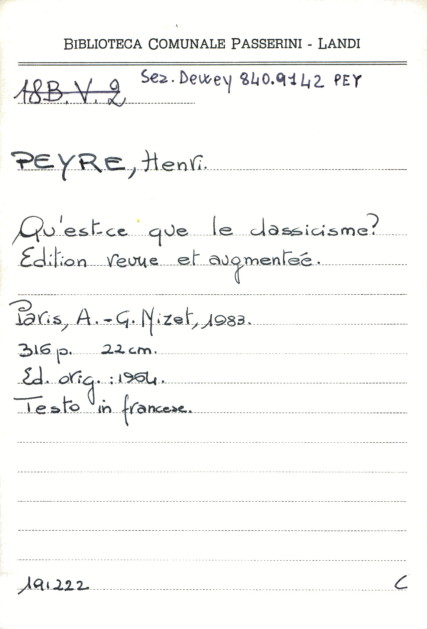 BIBLIOTECA COMUNALE PASSERINI - LANDI
18B. V. 2 Sez. Dewey 840.9142 PEY
PEYRE, Henri.
Qu'est-ce que le classicisme?
Edition revue et augmenteé.
Paris, A.-G. Nizet, 1983.
316 p. 22 cm.
Ed. orig.: 1964.
Testo in francese.
191222 C